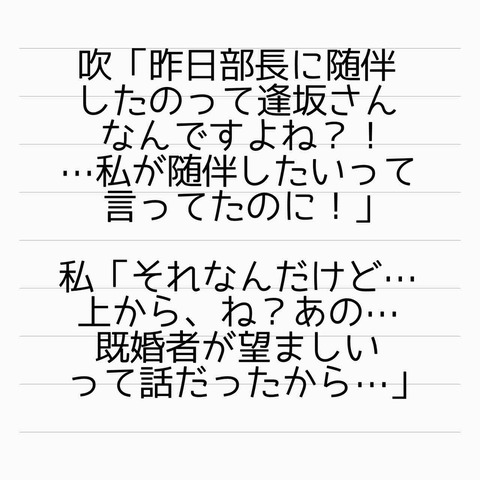 吹「昨日部長に随伴
したのって逢坂さん
なんですよね？！
…私が随伴したいって
言ってたのに！」
私「それなんだけど…
上から、ね？あの…
既婚者が望ましい
って話だったから…」